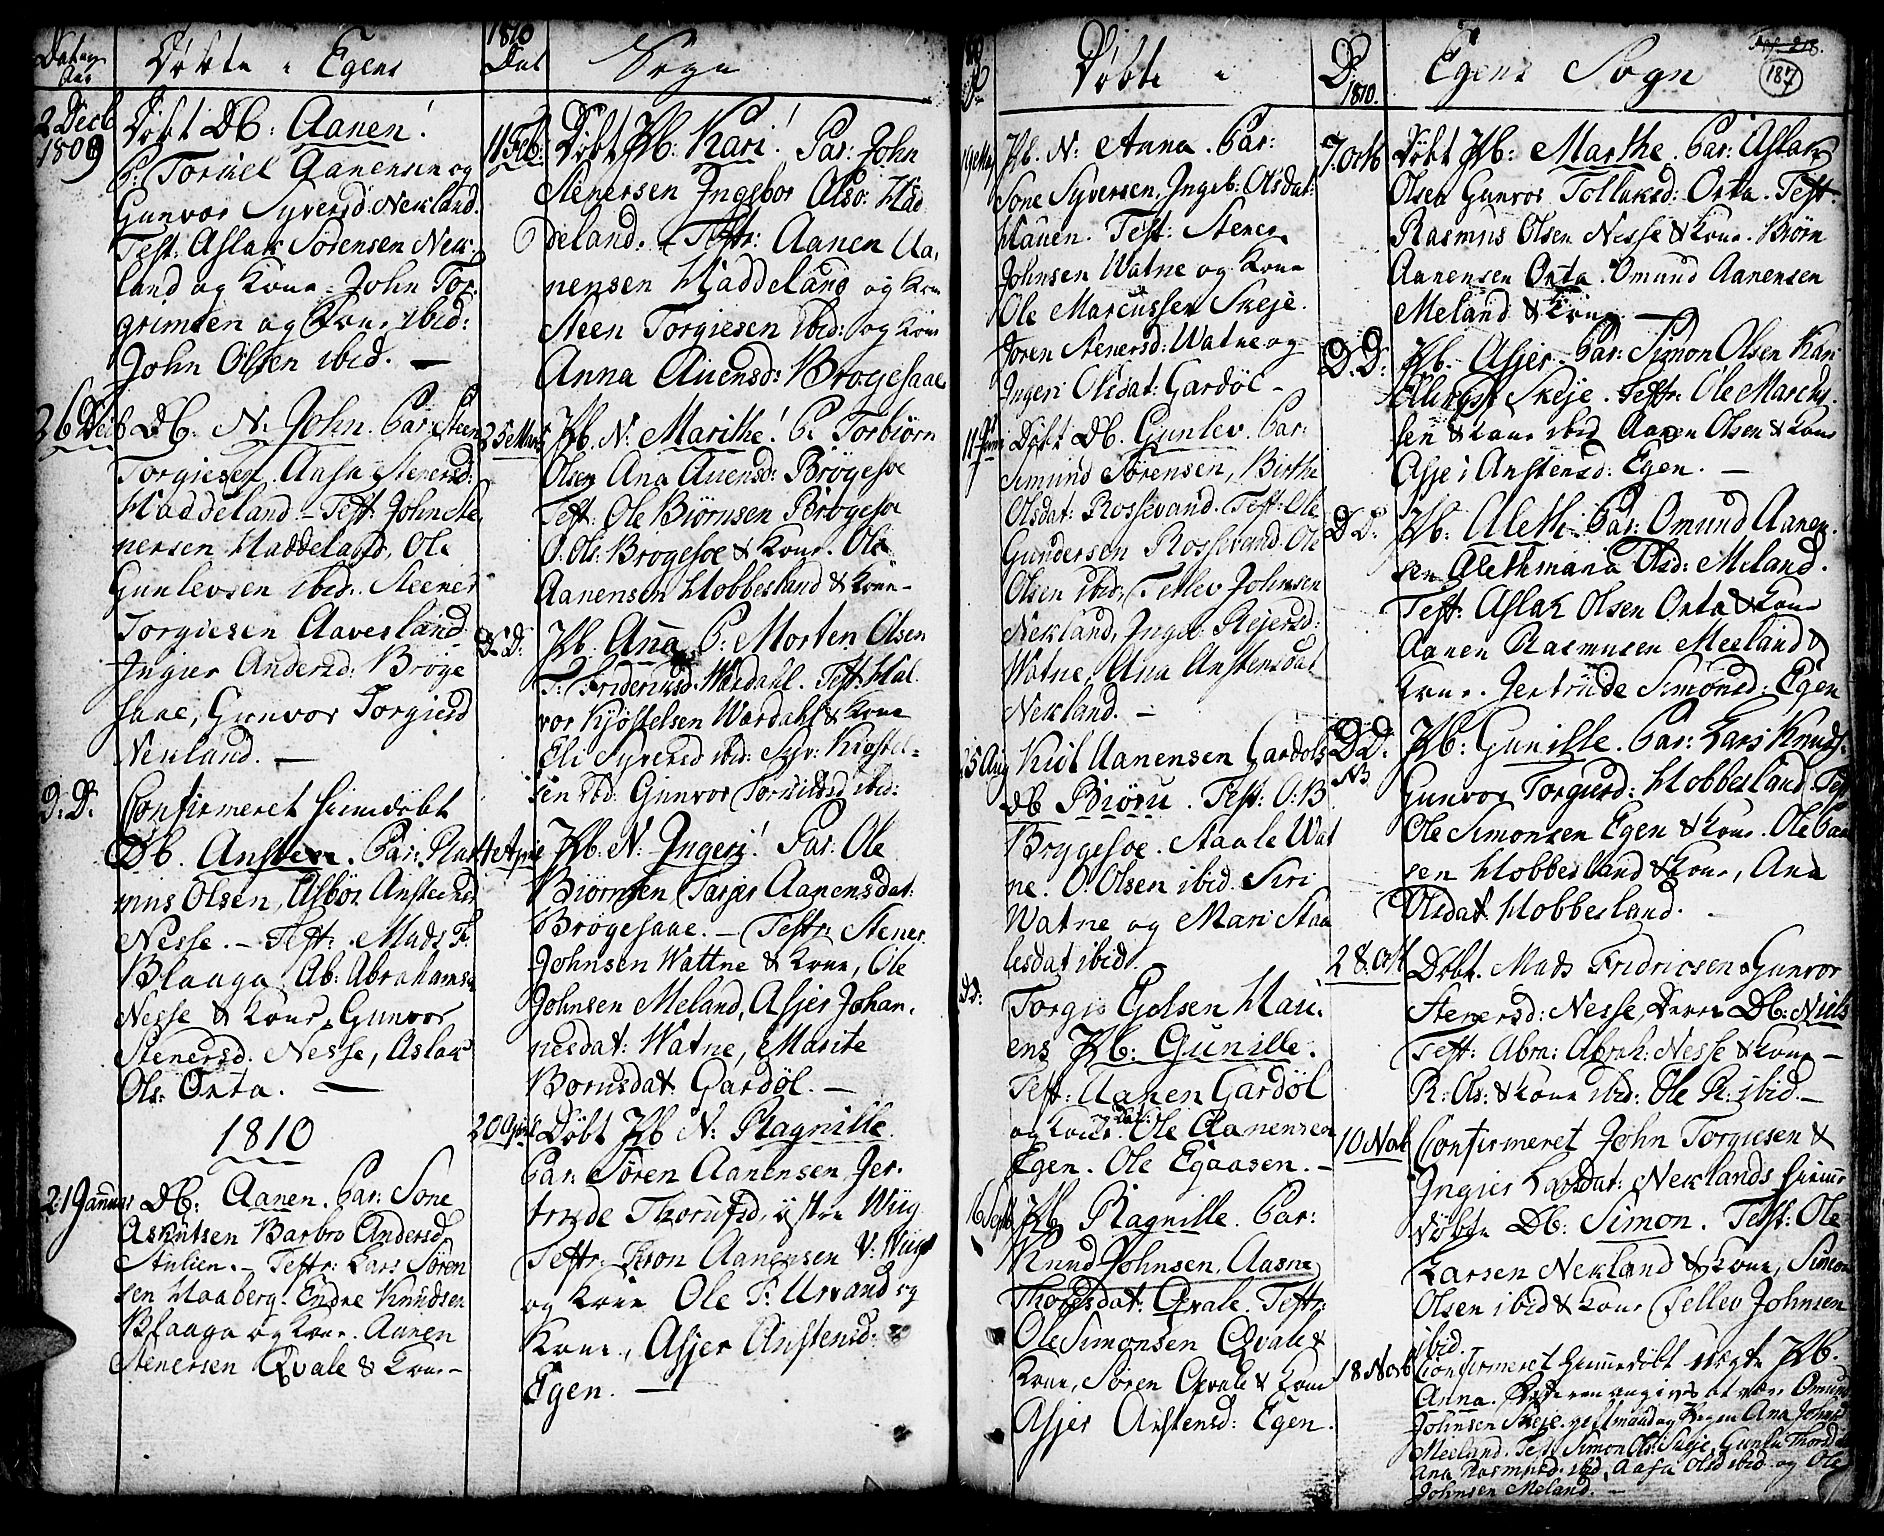 Dat og Aar
Døbte i Egens
2 Decb 1809
Døbt DB: Aanen!
P: Torkiel Aanensen og
Gunvor Syversd: Nekland.
Test: Aslak Sørensen Nek-
land og Kone - John Tor-
grimsen og Kone ibid:
John Olsen ibid. —
26 Decb
DB. N. John. Par: Steen
Torgiesen, Aasa Stenersd:
Haddeland - Test: John Ste-
nersen Haddeland, Ole
Gunlevsen ibid: Steener
Torgiesen Aavesland
Ingier Andersd: Brøge
saae, Gunvor Torgiesd
Nekland. —
D: D.
Confirmeret hiemdøbt
DB. Ansten. Par: Ras
mus Olsen, Asbør Anstensd
Nesse. - Test: Mads F.
Blaaga, Ab: Abrahams:
Nesse & Kone, Gunvor
Stenersd. Nesse, Aslak
Ols: Orta. —
1810
21 Januar
DB: Aanen. Par: Sone
Askutsen Barbro Andersd
Stulien. - Testr: Lars Søren
sen Haaberg. Endre Knudsen
Blaaga og Kone. Aanen
Stenersen Qvale & Kone -
1810
Dat
Sogn
11 Feb:
Døbt PB: Kari! Par: John
Stenersen Ingebor Olsd: Had
deland. - Testr: Aanen Aa-
nensen Haddeland og Kone
Steen Torgiesen ibid: og Kone
Anna Auensd: Brøgesaae
25 Marts
PB. N: Marithe! P: Torbiørn
Olsen Ana Auensd: Brøgesoe
Test: Ole Biørnsen Brøgesoe
O: Ols: Brøgesoe & Kone. Ole
Aanensen Hobbesland & Kone -
D: D:
PB. Ana P: Morten Olsen
T: Fridericksd: Wardahl. Test: Hal
vor Kjøstelsen Wardahl & Kone
Eli Syversd ibid: Syv: Kiøstel-
sen ibd: Gunvor Torkildsd ibid:
April
PB. N: Ingeri! Par: Ole
Biørnsen Tarjer Aanensdat:
Brøgesaae. - Testr: Stener
Johnsen Wattne & Kone, Ole
Johnsen Meland, Asjer Johan-
nesdat: Watne, Marite
Bornsdat Gardøl. —
20 April
Døbt PB N: Ragnille
Par: Søren Aanensen Ger-
trude Thorufsd: østre Wiig
Testr: Tron Aanensen V: Wiig
og Kone Ole F: Urvand og
Kone, Asjer Anstensd:
Egen. —
Døbte i
19 Maj
PB. N: Anna. Par:
Sone Syversen, Ingeb: Olsdat:
Hauen. Test: Stener
Johnsen Watne og Kone
Ole Marcussen Skeje
Joren Stenersd: Watne og
Ingeri Olsdat: Gardøl -
11 Juni
Døbt DB. Gunlev. Par:
Simund Sørensen, Birthe
Olsdat: Rossevand. Test: Ole
Gundersen Rossevand Ole
Olsen ibid: Tellev Johnsen
Nekland, Inger Rejersd:
Watne, Ana Anstensdat
Nekland. —
25 Aug
Kiøl Aanensen Gardøls
DB Biøru. Test: O: B
Brygesoe. Staale Wat
ne. O: Olsen ibid. Siri
Watne og Mari Staa
lesdat ibid.
D: D:
Torgis Egelsen Hau-
ens PB: Gunille.
Test: Aanen Gardøl
og Kone. Ole Aanensen
Egen. Ole Egaasen. -
16 Sept
PB Ragnille. Par:
Knud Johnsen, Aasne
Thoresdat: Qvale. Testr:
Ole Simonsen Qvale &
Kone, Søren Qvale & Kone
Asjer Anstensd: Egen.
D. 1810.
Egens Sogn
218.
187
7 Octb
Døbt PB: Marthe. Par: Aslak
Olsen Gunvor Tollaksd: Orta. Test:
Rasmus Olsen Nesse & Kone. Biørn
Aanensen Orta. Omund Aanensen
Meland & Kone. —
D. D:
PB. Asjer. Par: Simon Olsen
Skeje. Testr: Ole Marcus-
sen & Kone ibid Aanen Olsen & Kone
Asje: Anstensd: Egen. —
D. D:
PB: Aleth. Par: Omund Aanen-
sen Alethmana Olsd: Meland.
Test: Aslak Olsen Orta & Kone
Aanen Rasmusen Meeland &
Kone. Jertrude Simonsd: Egen
D. D:
NB
PB: Gunille. Par: Lars Knuds:
Gunvor Torgiesd: Hobbesland. Test
Ole Simonsen Egen & Kone. Ole Laa
sen Hobbesland & Kone, Ana
Olsdat Hobbesland. -
28 Oct
Døbt. Mads Fridricsen & Gunvor
Stenersd: Nesse, Deres DB: Niels
Test: Abra: Abrah: Nesse & Kone -
R: Ols: & Kone ibid: Ole R: ibid. -
10 Novb
Confirmeret John Torgiesen &
Ingier Larsdat: Neklands hiemme
døbte DB: Simon. Test: Ole
Larsen Nekland & Kone, Simon
Olsen ibid & Kone Tellev Johnsen
ibid.
18 Novb
Confirmeret hiemmedøbt uægte PB.
Anna. Faderen angives at være Omund
Johnsen Skeje, gift mand og Pigen Ana Johnsd
Meeland. Test: Simon Ols: Skeje, Gunlu Thords
Ana Rasmusd: ibid, Aasa Olsd ibid og Ole
Johnsen Meland. —